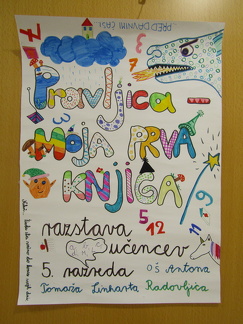 PRED DAVNIMI ČASI
7
3
7
Pravljica-
MOJA PRVA
3
KNJIGA
5 12
11 9
razstava
učencev
5. razreda OŠ Antona
Tomaža Linharta Radovljica